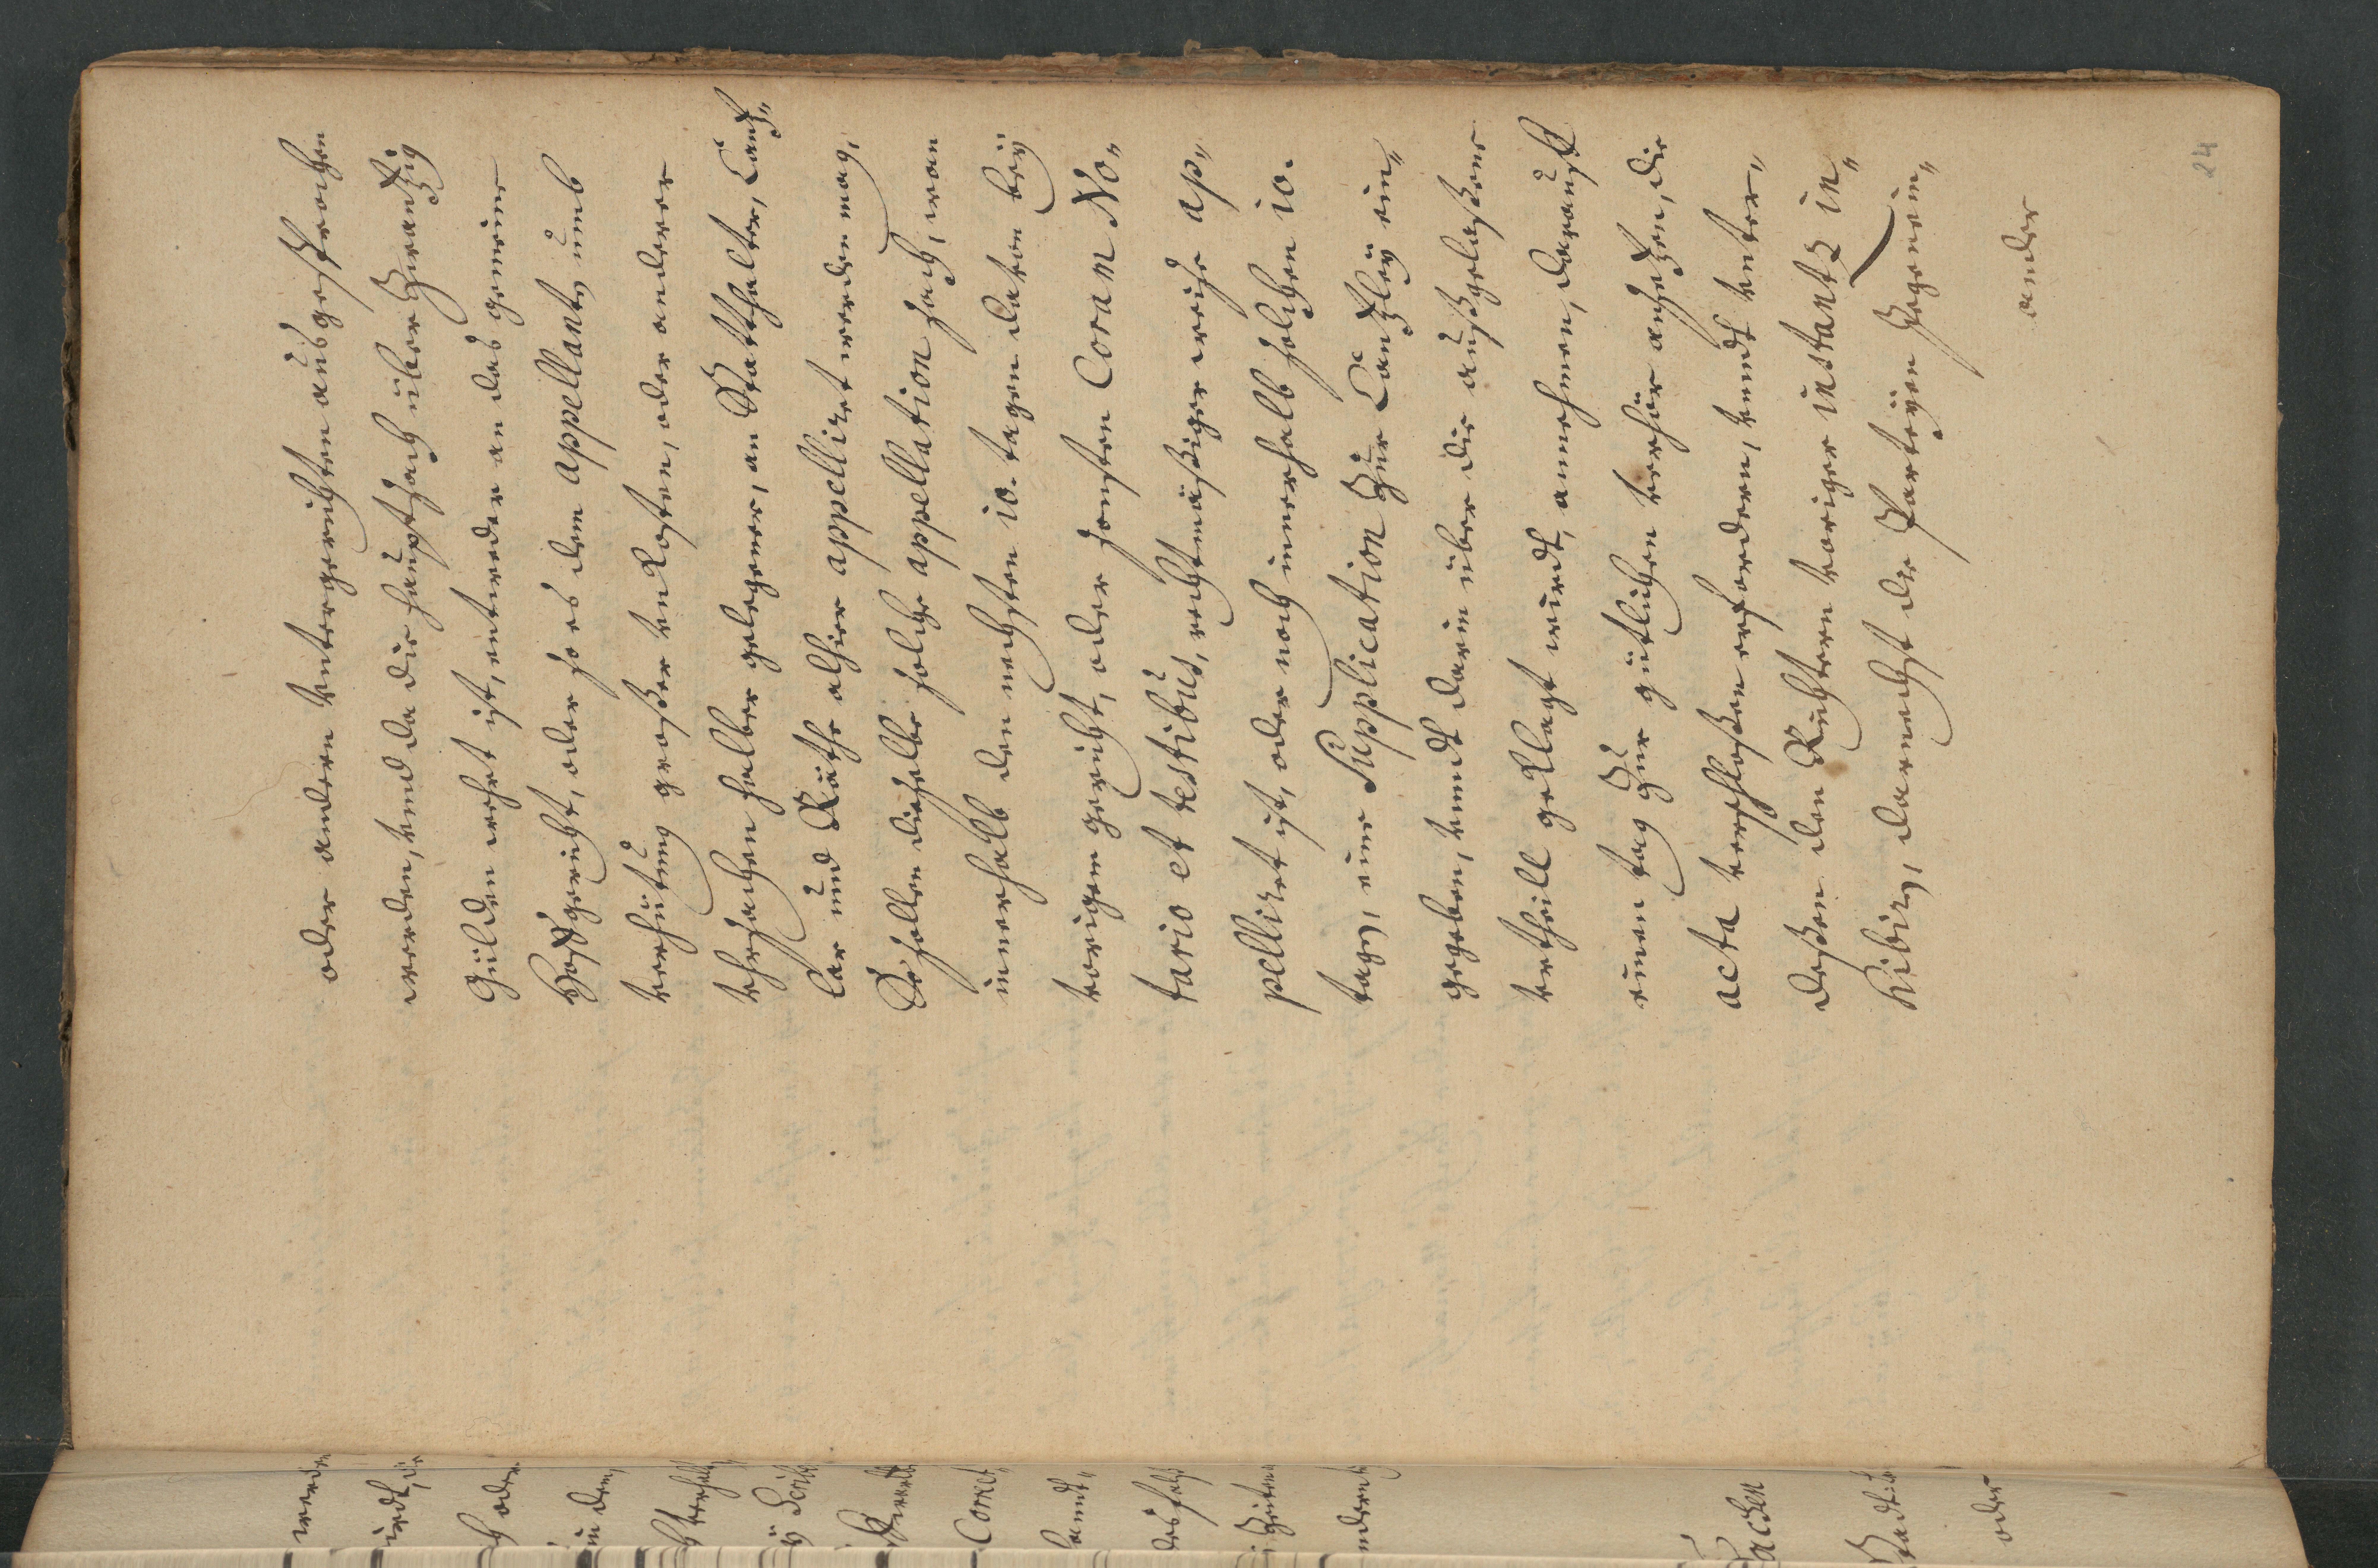 oder andern Untergerichten ausgesprochen
werden, Und da die hauptsach über Zwantzig
Gülden wehrt ist, entweder an das gemeine
Hoffgericht, oder so es dem Appellanten umb
verhütung großer Unkosten, oder anderer
Uhrsachen halber gelegener, an Statthalter, Cantz„
lar und Räthe alhier appelliret werden mag,
Es sollen dieselbe solche appellation sach, wan
innerhalb den nechsten 10. tagen datur bey
vorigem gericht, oder sonsten Coram No„
tario et testibus, rechtmäßiger weise ap„
pelliret ist, oder noch innerhalb solchen 10.
tagen, eine Supplication Zur Cantzley ein„
gegeben, Unndt darin über die außgelaßene
Urtheill geklagt wirdt, annehmen, darauff
einen tag Zur gütlichen verhör ansetzen, die
acta verschloßen erfordern, Unndt Unter„
deßen den Richtern voriger instantz in„
hibiren, darnechst die Partheyen gegenein„
ander
24
werden
wirdt, die
oder
in dem,
Unterhalt
Scribe
Corret„
landt„
desfals
Zeiten
andern
Sachen
Stadt
oder